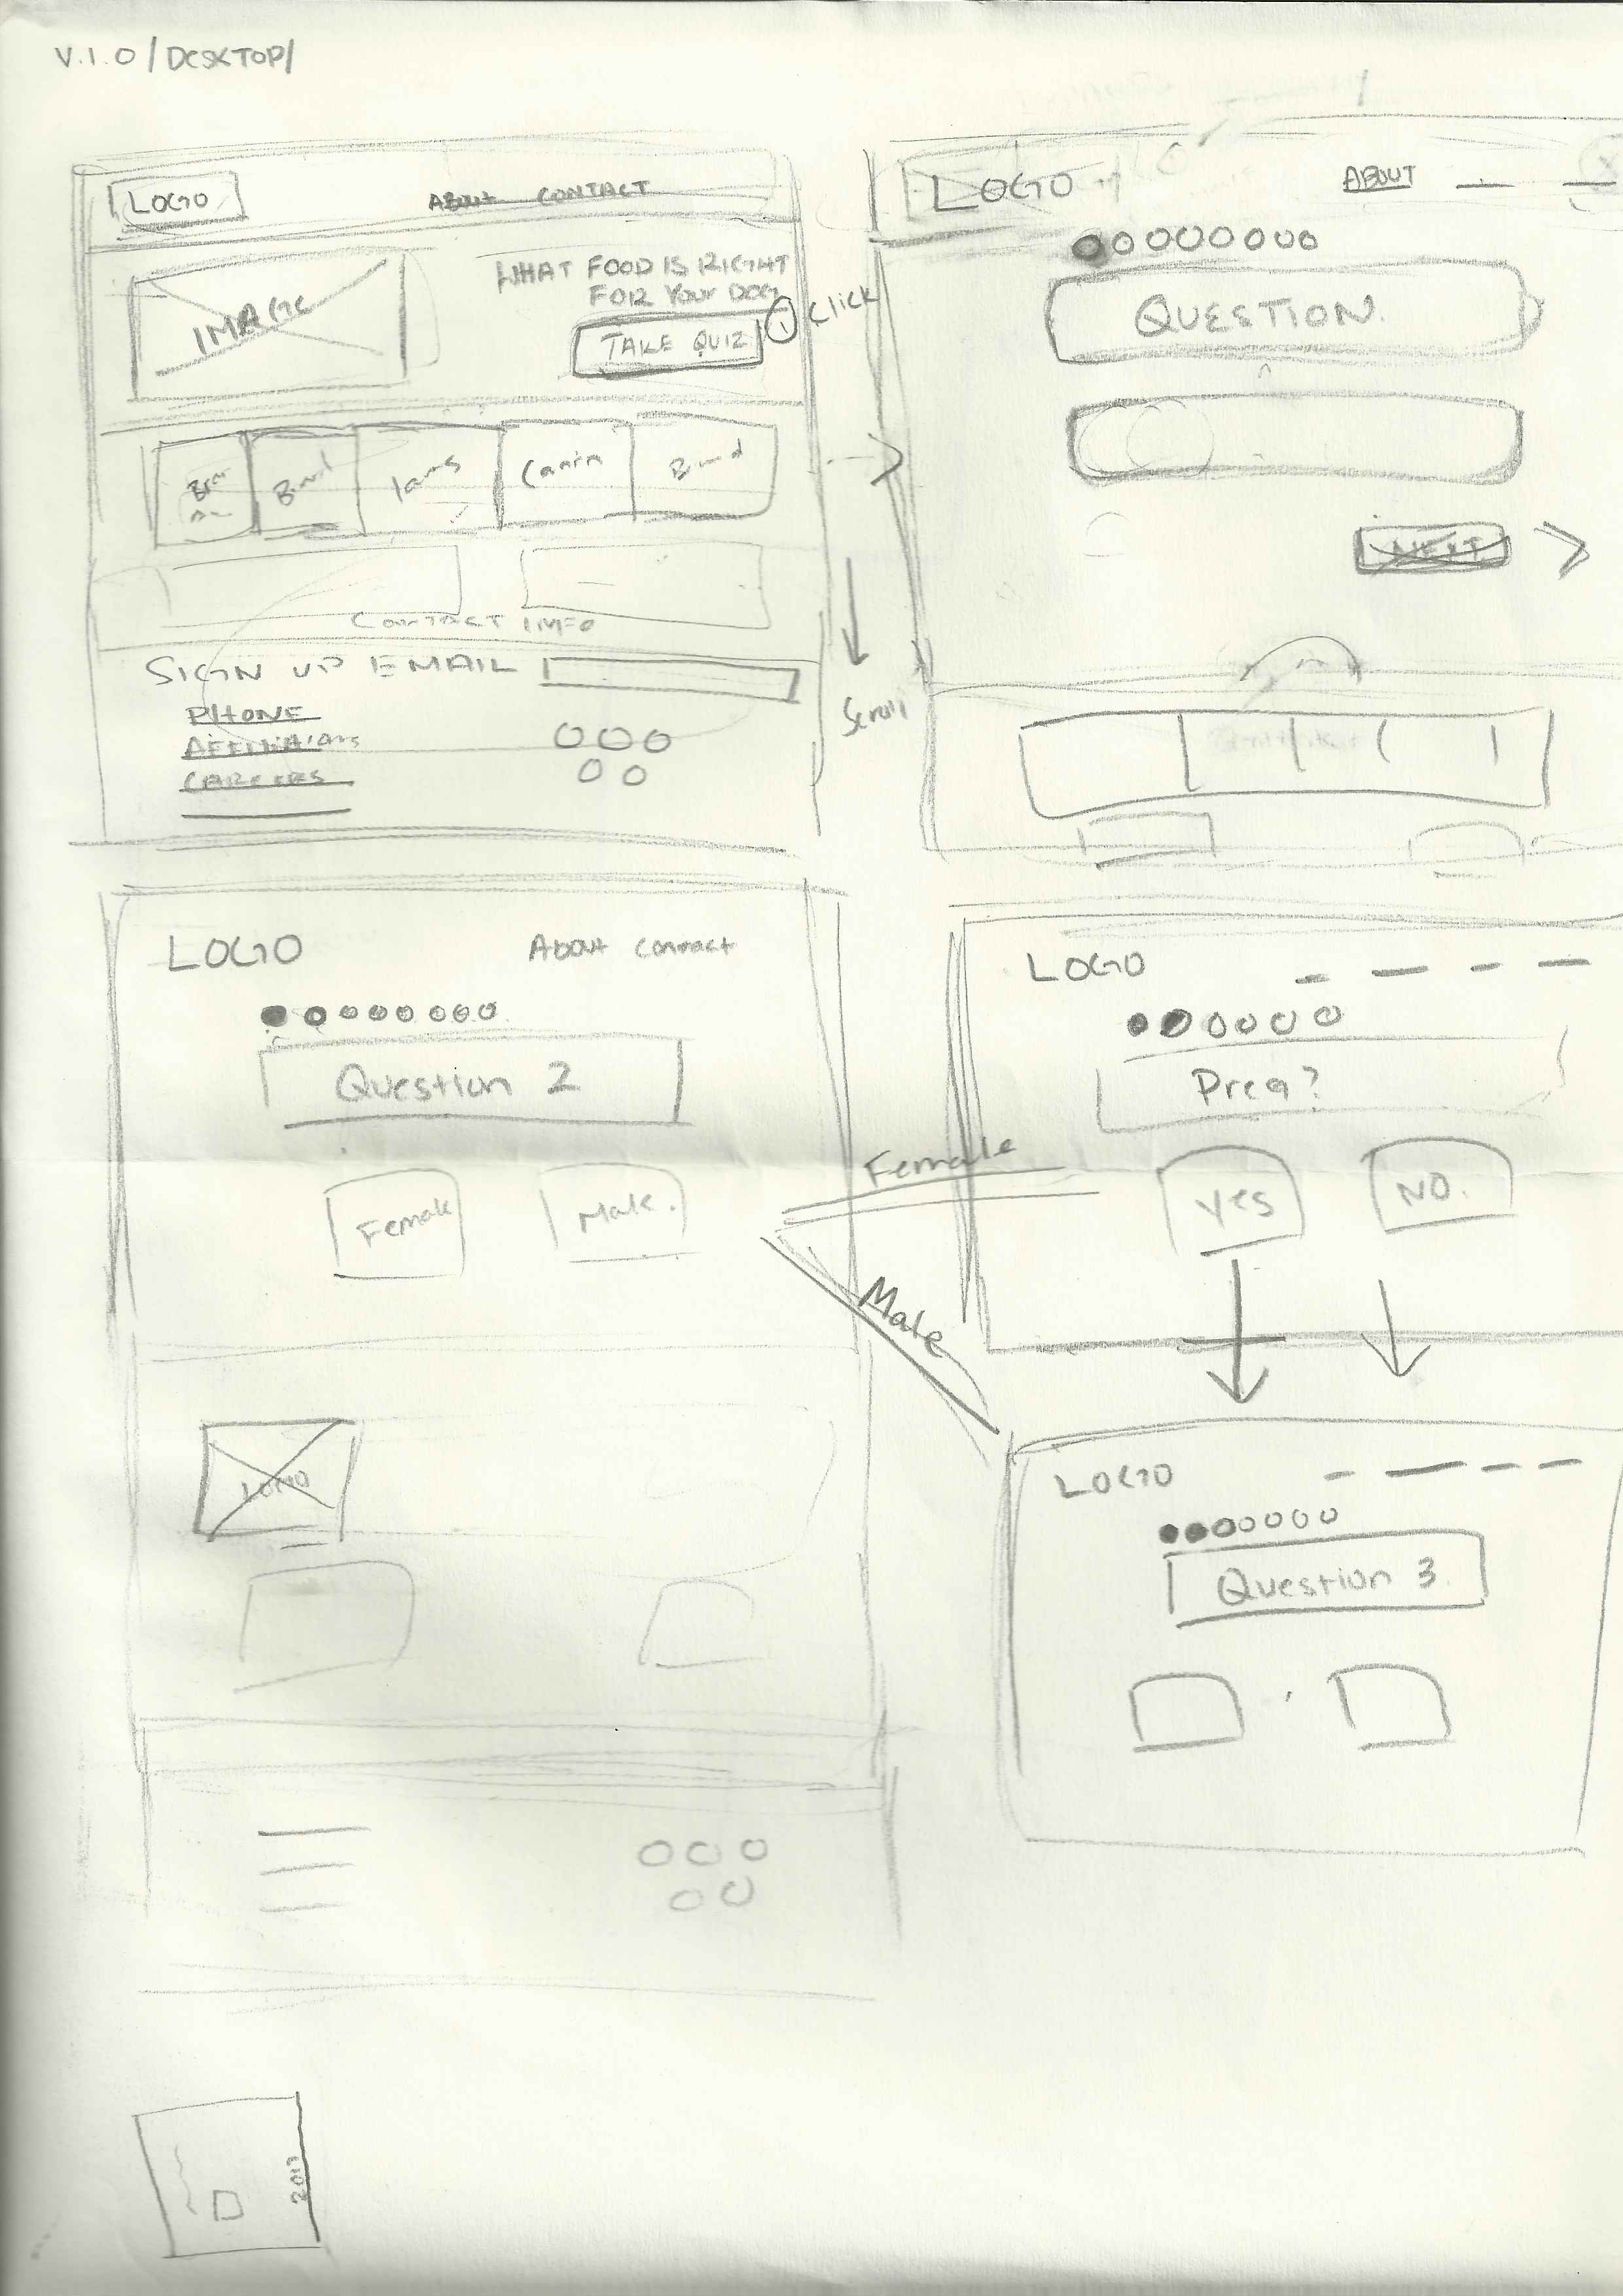 V.1.0 / DESKTOP /
LOGO
ABOUT CONTACT
IMAGE
WHAT FOOD IS RIGHT
FOR YOUR DOG
TAKE QUIZ
Click
Brand
Iams
Brand
CONTACT INFO
SIGN UP EMAIL
PHONE
CAREERS
Scroll
LOGO
ABOUT
QUESTION.
NEXT
LOGO
About Contact
Question 2
Female
Male.
Female
Male
LOGO
Preg?
Yes
NO.
LOGO
LOGO
Question 3.
2017